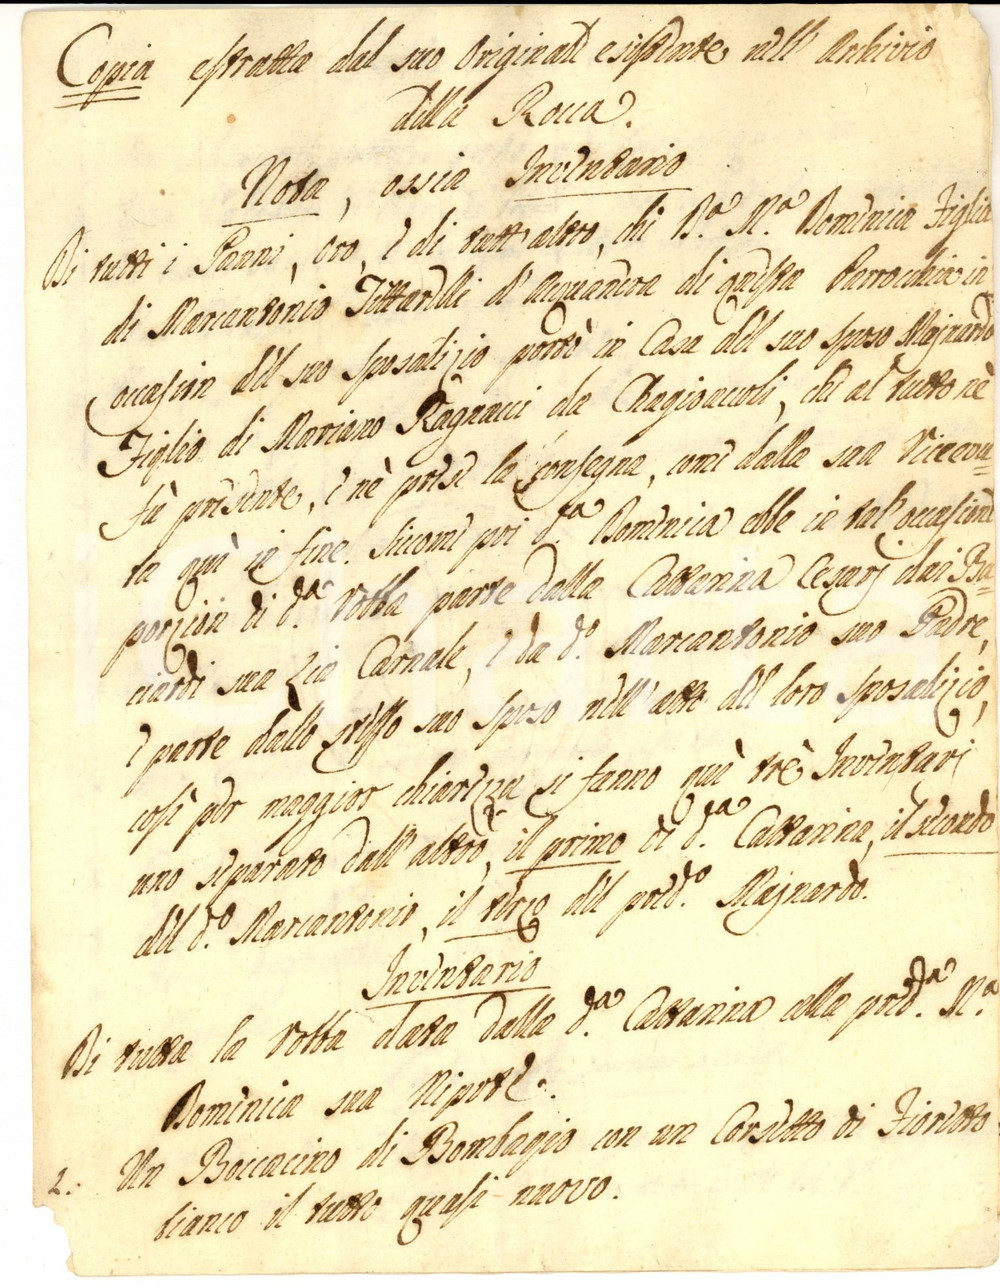 Copia estratta dal suo Originale esistente nell' Archivio
della Rocca.
Nota, ossia Inventario
Di tutti i Panni, Oro, e di tutt' altro, che D.ª M.ª Domenica Figlia
di Marcantonio d' Acquanera di questa Parrochia in
occasion del suo sposalizio portò in Casa del suo sposo Majnardo
Figlio di Mariano Ragnacci da Chagioaccoli, che al tutto nè
fù presente, e nè prese la consegna, come dalla sua Ricevu=
ta quì in fine. Siccome poi d.ª Domenica ebbe in tal' occasione
porzion di d.ª robba parte dalla Cattarina Cesarj dai Ba=
ciardi sua Zia Carnale, e da d.º Marcantonio suo Padre,
e parte dallo stesso suo sposo nell' atto del loro sposalizio,
così per maggior chiarezza si fanno quì trè Inventarj
uno separato dall' altro, il primo di d.ª Cattarina, il secondo
del d.º Marcantonio, il terzo del pred.º Majnardo.
Inventario
Di tutta la robba data dalla d.ª Cattarina alla pred.ª M.ª
Domenica sua Nipote.
1. Un Boccacino di Bombagio con un Corsetto di Fioretto
bianco il tutto quasi nuovo.